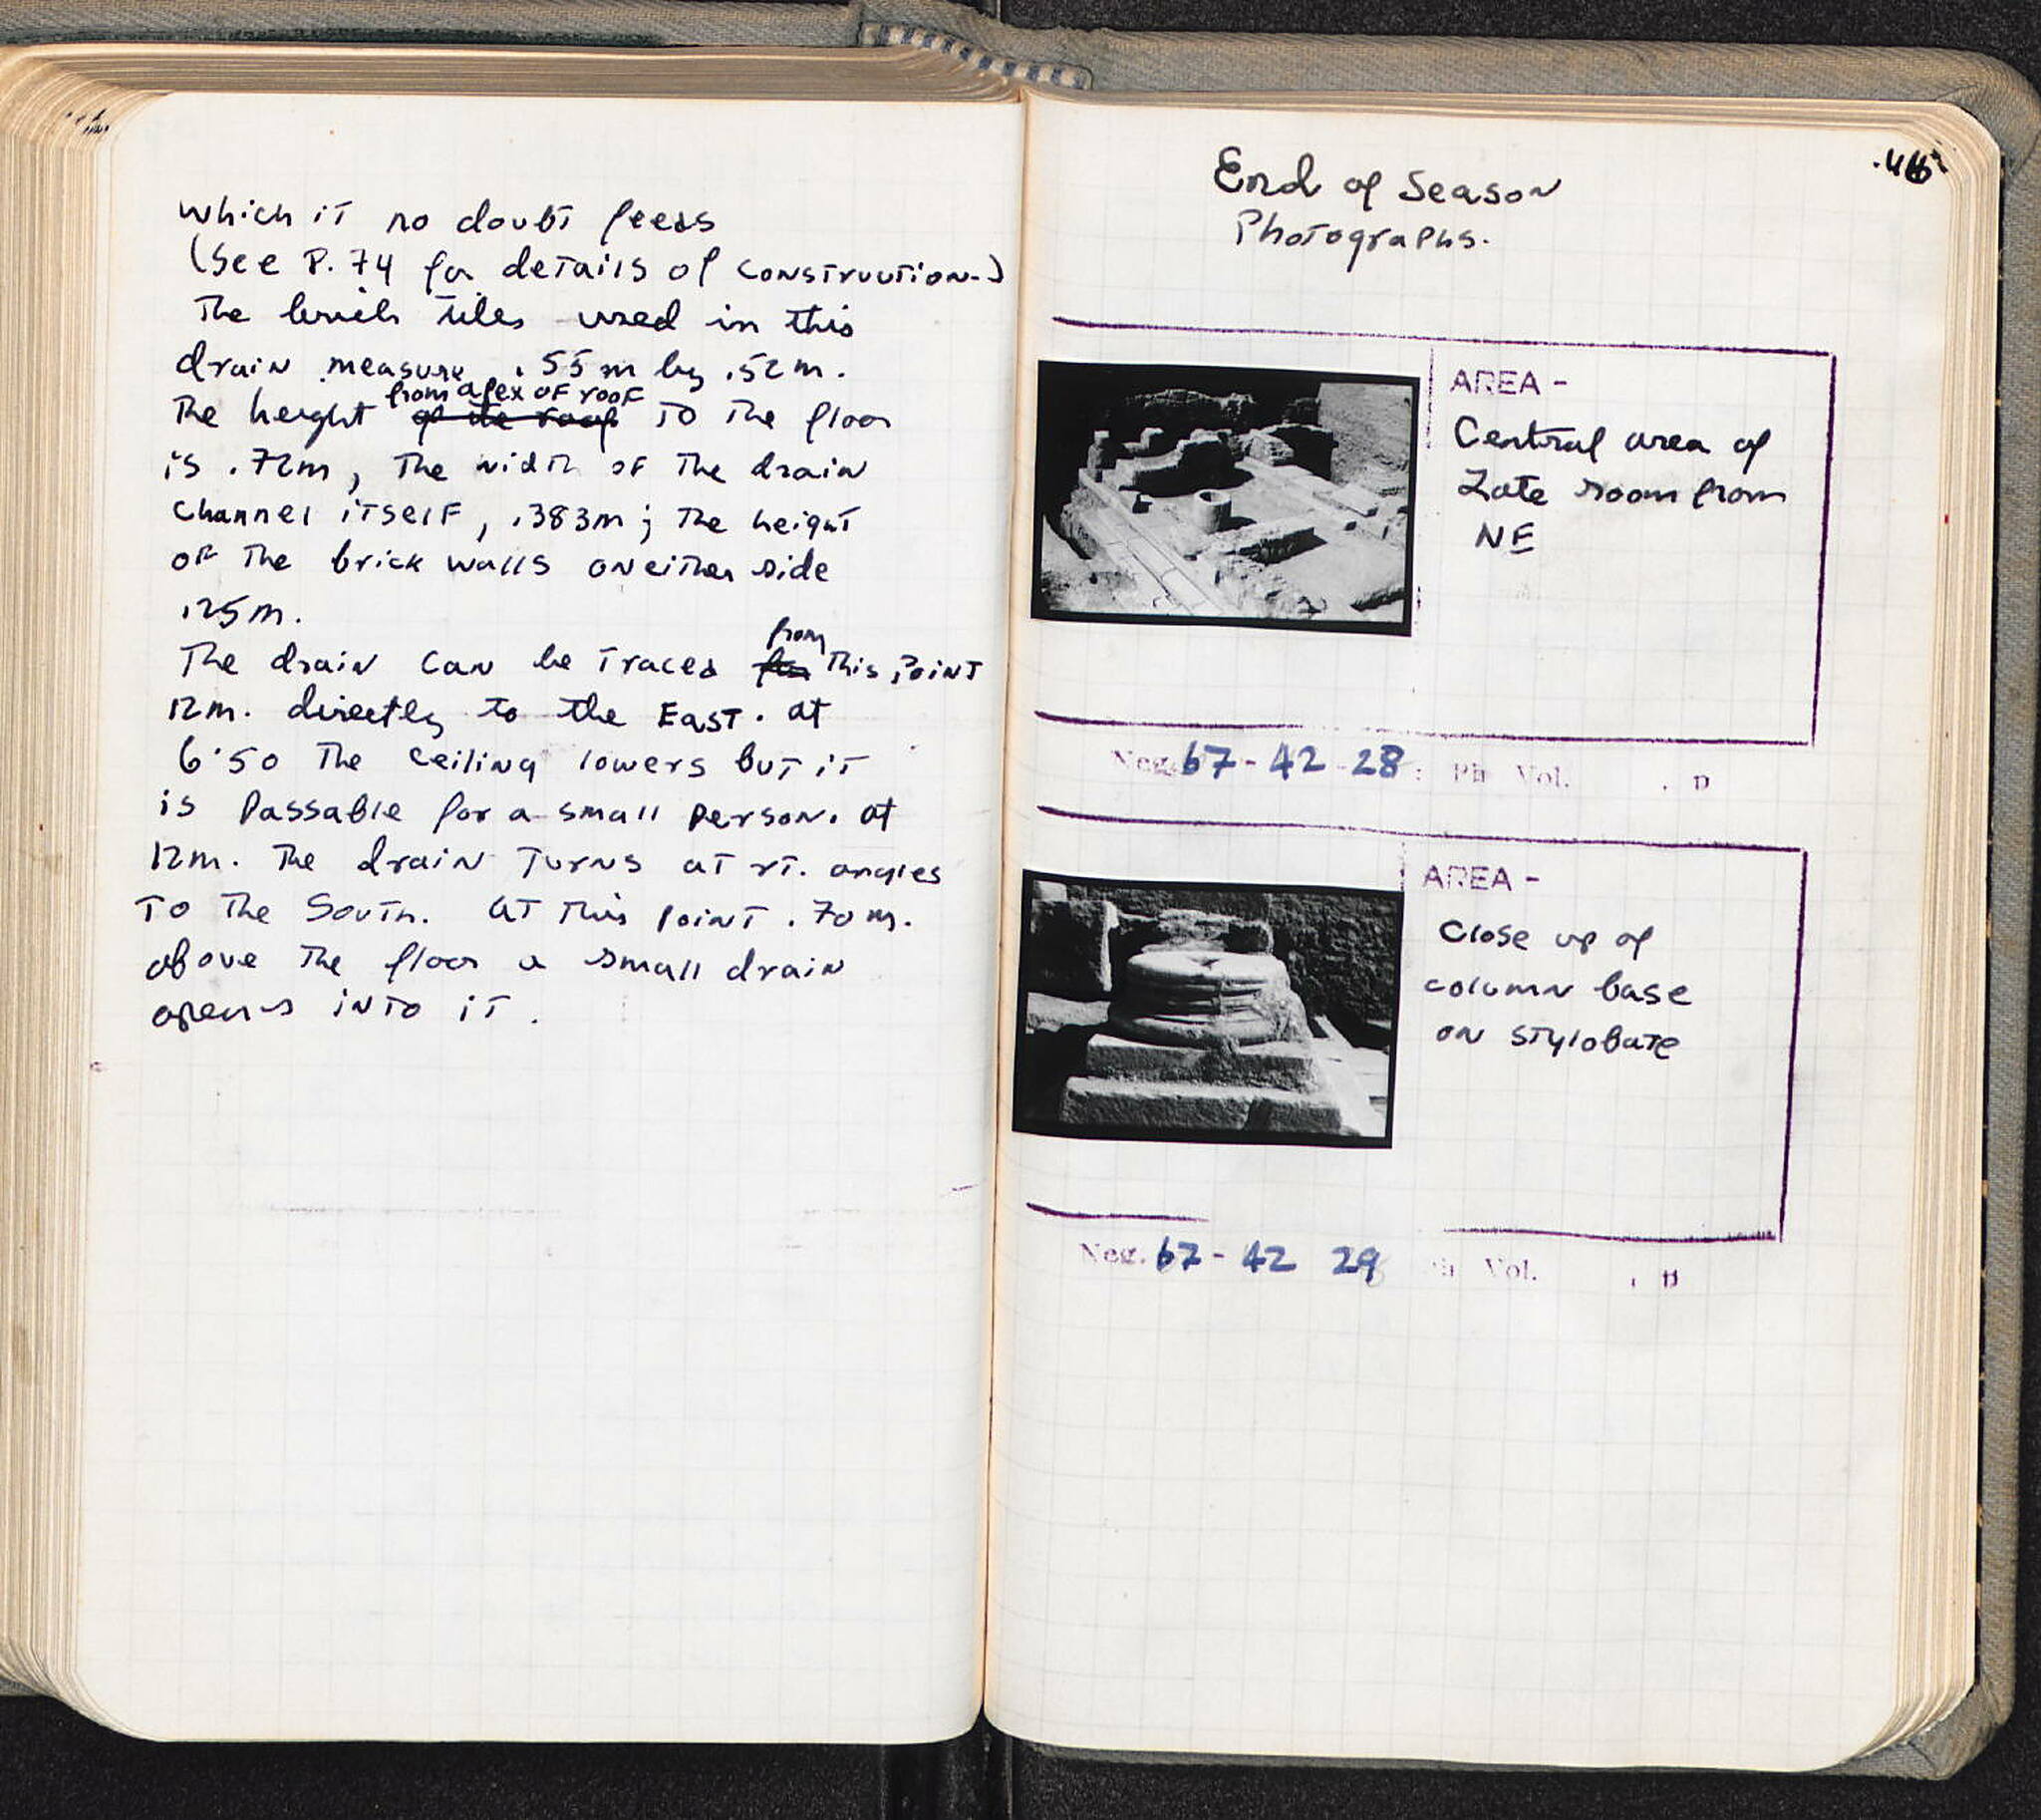 which it no doubt feeds
(See P. 74 for details of construction.)
The brick tiles used in this
drain measure .55 m by .52 m.
from apex of roof
The height of the roof to the floor
is .72m, The width of the drain
channel itself, .383m; the height
of the brick walls on either side
.25m.
from
The drain can be traced this point
12m. directly to the East. at
6.50 the ceiling lowers but it
is passable for a small person. at
12m. The drain turns at rt. angles
to the South. At this point .70 m.
above the floor a small drain
opens into it.
End of Season
Photographs.
AREA -
Central area of
Late room from
NE
Neg. 67-42-28 Ph Vol.
AREA -
Close up of
column base
on stylobate
Neg. 67-42 29 Ph Vol.